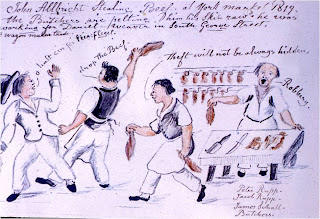 John Allbricht Stealing Beef. at York market 1819.
the Butchers are pelting him
he was
working for
Weaver in South George Street
wagon maker
drop the Beef.
theft will not be always hidden
Robbery.
Peter Rupp.
Jacob Rupp.
James Schall.
Butchers.